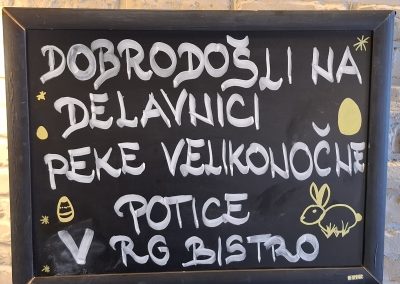 DOBRODOŠLI NA
DELAVNICI
PEKE VELIKONOČNE
POTICE
V RG BISTRO